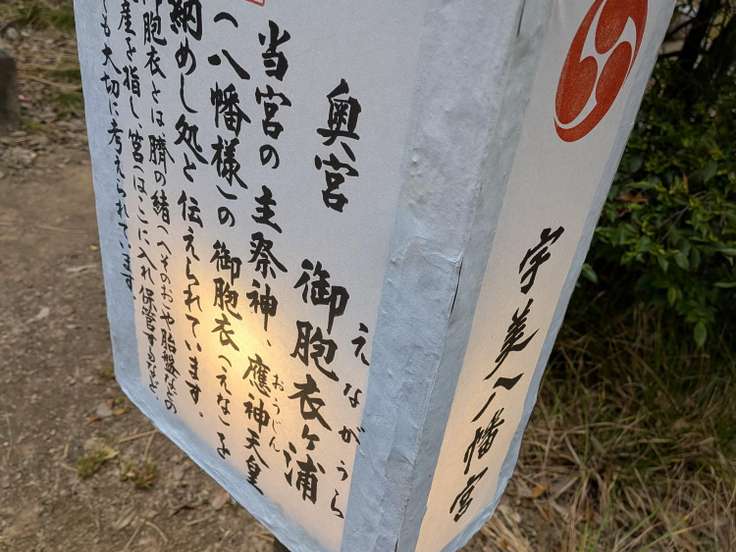 奥宮 御胞衣ヶ浦
えながうら
当宮の主祭神、應神天皇
おうじん
(八幡様)の御胞衣(えな)を
納めし処と伝えられています。
御胞衣とは臍の緒(へそのお)や胎盤などの
産を指し、筥(はこ)に入れ保管するなど、
も大切に考えられています。
宇美八幡宮